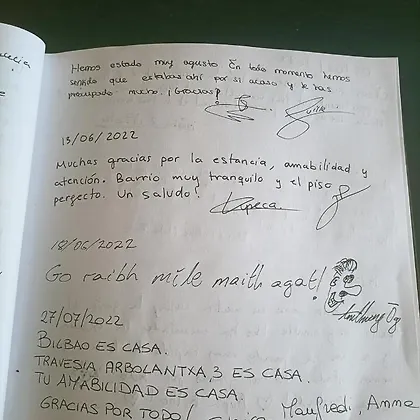 Hemos estado muy agusto En todo momento hemos
sentido que estabas ahí por si acaso y te has
preocupado mucho. ¡Gracias!
13/06/2022
Muchas gracias por la estancia, amabilidad y
atención. Barrio muy tranquilo y el piso
perfecto. Un saludo!
18/06/2022
Go raibh míle maith agat!
27/07/2022
BILBAO ES CASA.
TRAVESIA ARBOLANTXA, 3 ES CASA.
TU AMABILIDAD ES CASA.
GRACIAS POR TODO!
Manfredi, Anna